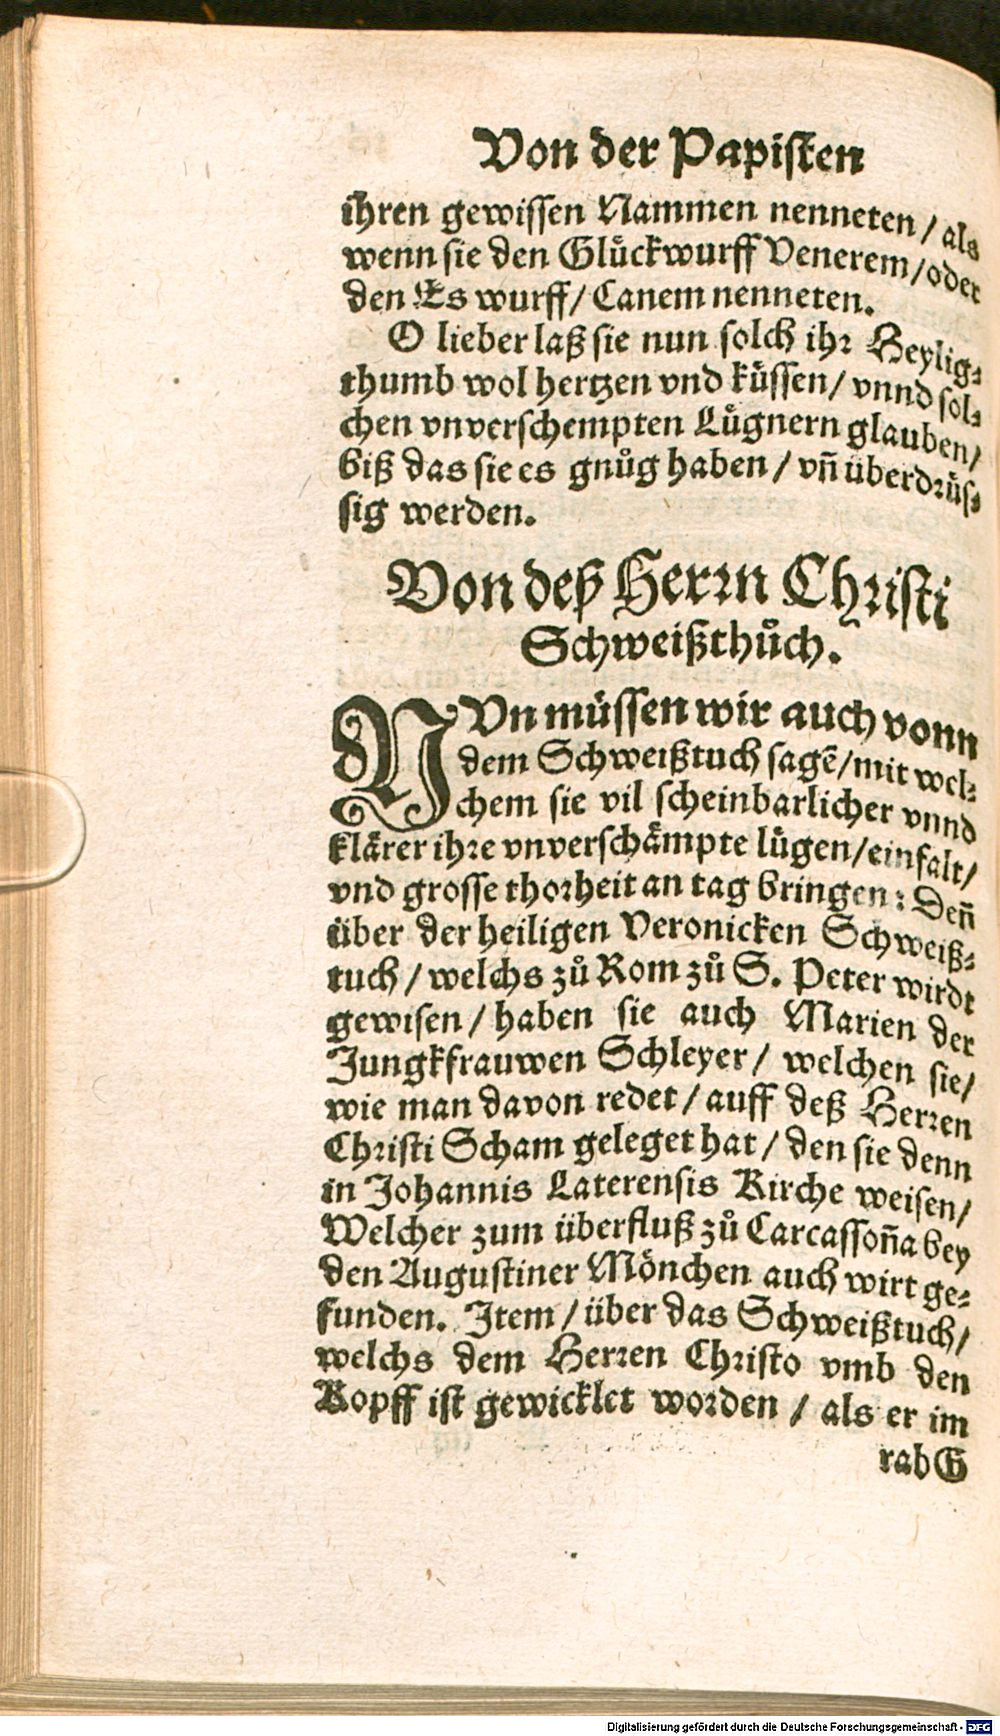 Von der Papisten
ihren gewissen Nammen nenneten / als
wenn sie den Glückwurff Venerem / oder
den Es wurff / Canem nenneten.
O lieber laß sie nun solch ihr Heylig⸗
thumb wol hertzen vnd küssen / vnnd sol⸗
chen vnverschempten Lůgnern glauben /
biß das sie es gnůg haben / vñ überdrüs⸗
sig werden.
Von deß Herrn Christi
Schweißthůch.
NVn müssen wir auch vonn
dem Schweißtuch sagẽ / mit wel⸗
chem sie vil scheinbarlicher vnnd
klärer ihre vnverschämpte lügen / einfalt /
vnd grosse thorheit an tag bringen: Deñ
über der heiligen Veronicken Schweiß⸗
tuch / welchs zů Rom zů S. Peter wirdt
gewisen / haben sie auch Marien der
Jungkfrauwen Schleyer / welchen sie /
wie man davon redet / auff deß Herren
Christi Scham geleget hat / den sie denn
in Johannis Laterensis Kirche weisen /
Welcher zum überfluß zů Carcassoña bey
den Augustiner Mönchen auch wirt ge⸗
funden. Item / über das Schweißtuch /
welchs dem Herren Christo vmb den
Kopff ist gewicklet worden / als er im
rabG
Digitalisierung gefördert durch die Deutsche Forschungsgemeinschaft - DFG